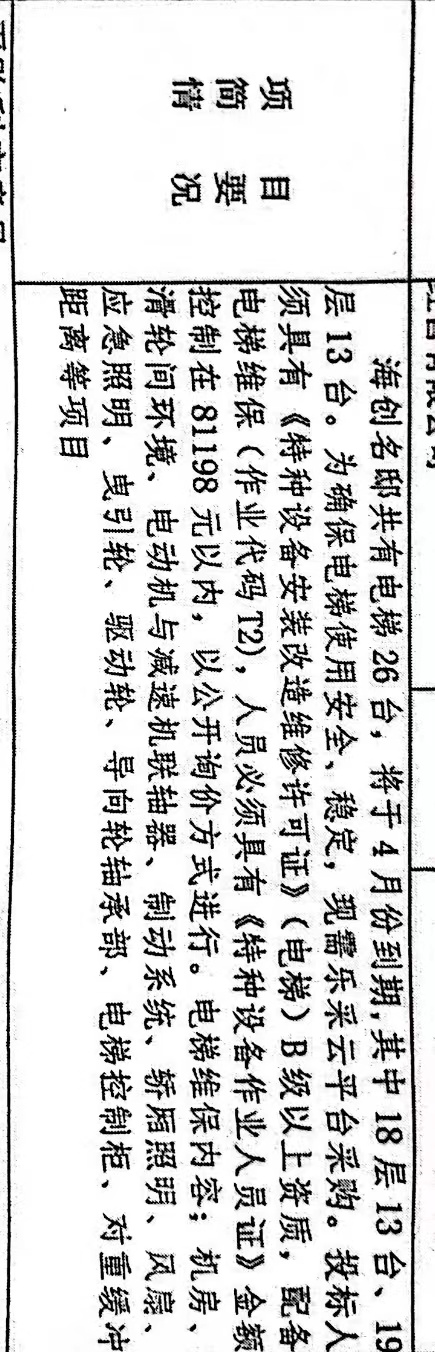 项目
简要
情况
海创名邸共有电梯26台，将于4月份到期，其中18层13台、19
层13台。为确保电梯使用安全、稳定，现需乐采云平台采购。投标人
须具有《特种设备安装改造维修许可证》（电梯）B级以上资质，配备
电梯维保（作业代码T2），人员必须具有《特种设备作业人员证》金额
控制在81198元以内，以公开询价方式进行。电梯维保内容；机房、
滑轮间环境、电动机与减速机联轴器、制动系统、轿厢照明、风扇、
应急照明、曳引轮、驱动轮、导向轮轴承部、电梯控制柜、对重缓冲
距离等项目